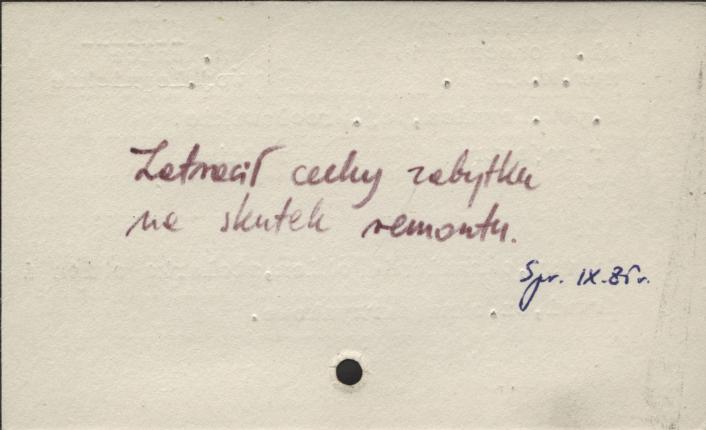 Zatracił cechy zabytku
na skutek remontu.
Spr. IX.85r.